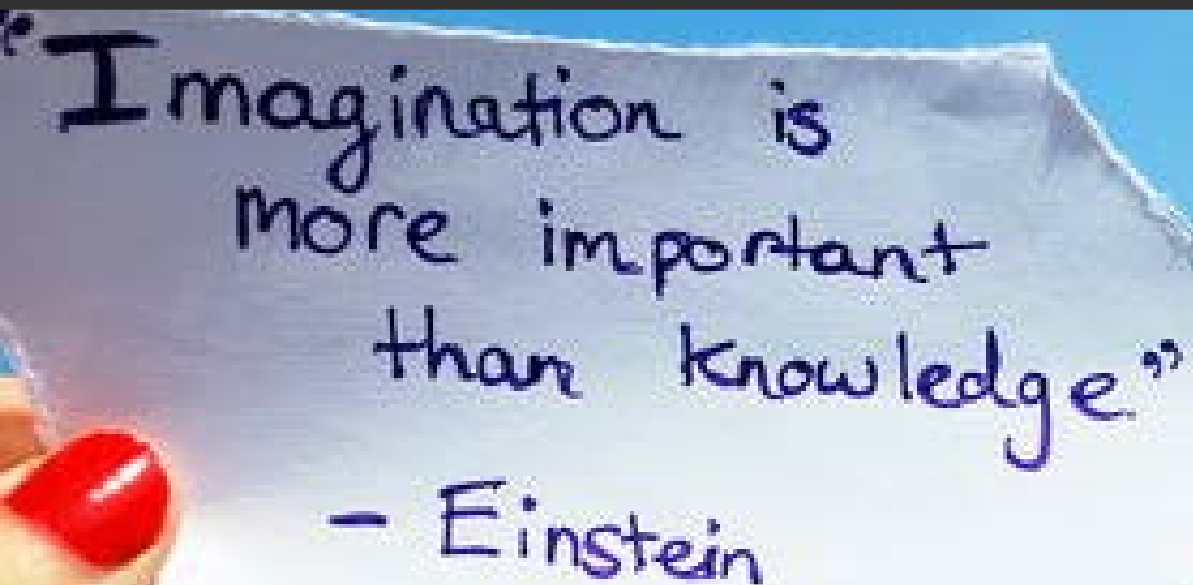 "Imagination is
more important
than knowledge."
- Einstein